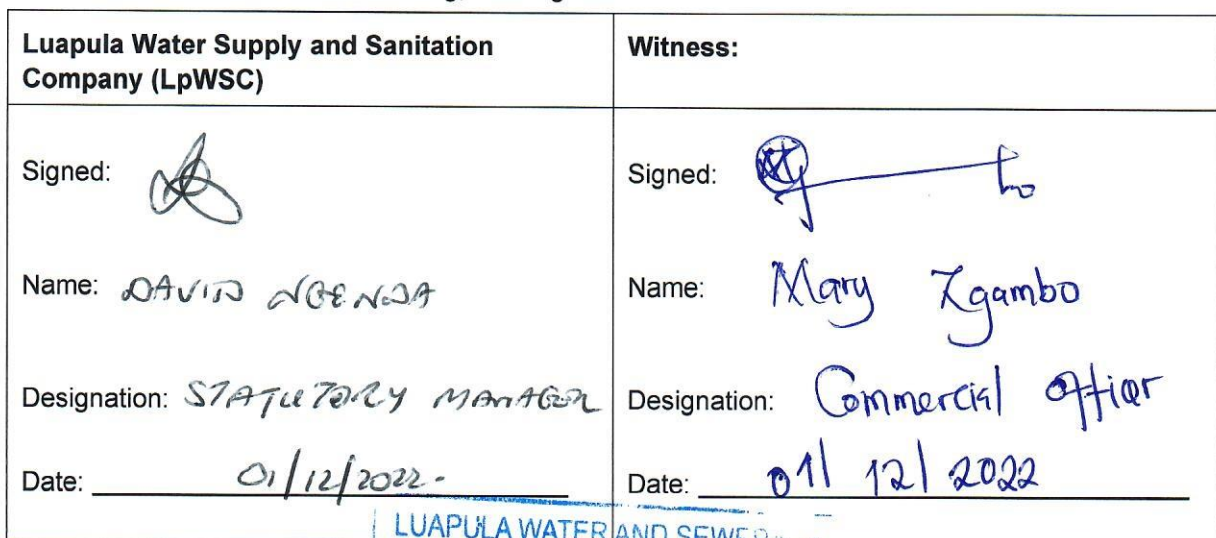 Luapula Water Supply and Sanitation
Company (LpWSC)
Witness:
Signed:
Signed:
Name: DAVID
Name: Mary Zgambo
Designation: STATUTORY MANAGER
Designation: Commercial Officer
Date: 01/12/2022.
Date: 01/12/2022
LUAPULA WATER AND